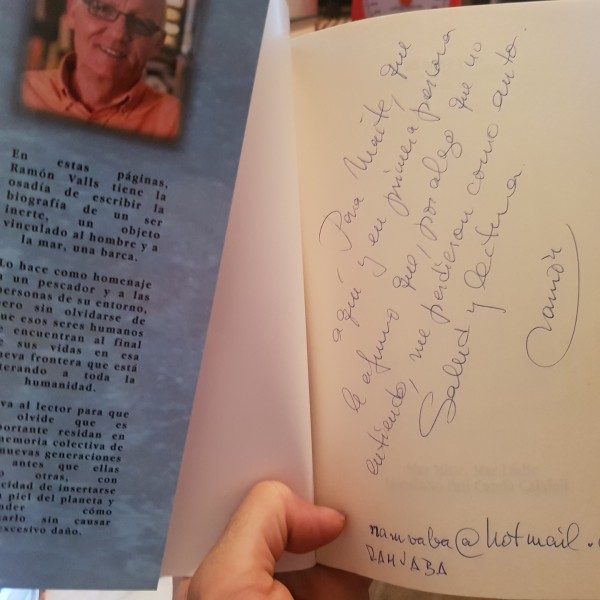 En estas páginas,
Ramón Valls tiene la
osadía de escribir la
biografía de un ser
inerte, un objeto
vinculado al hombre y a
la mar, una barca.
Lo hace como homenaje
a un pescador y a las
personas de su entorno,
pero sin olvidarse de
que esos seres humanos
se encuentran al final
de sus vidas en esa
nueva frontera que está
alterando a toda la
humanidad.
va al lector para que
olvide que es
portante residan en
memoria colectiva de
nuevas generaciones
antes que ellas
otras, con
cidad de insertarse
piel del planeta y
nder cómo
arlo sin causar
excesivo daño.
Para Maite, que
aquí y en primera persona
le afirmo que, por algo que no
entiendo, me perdieron como autor.
Salud y lectura.
Ramón
ramvaba@hotmail.
RAMVABA